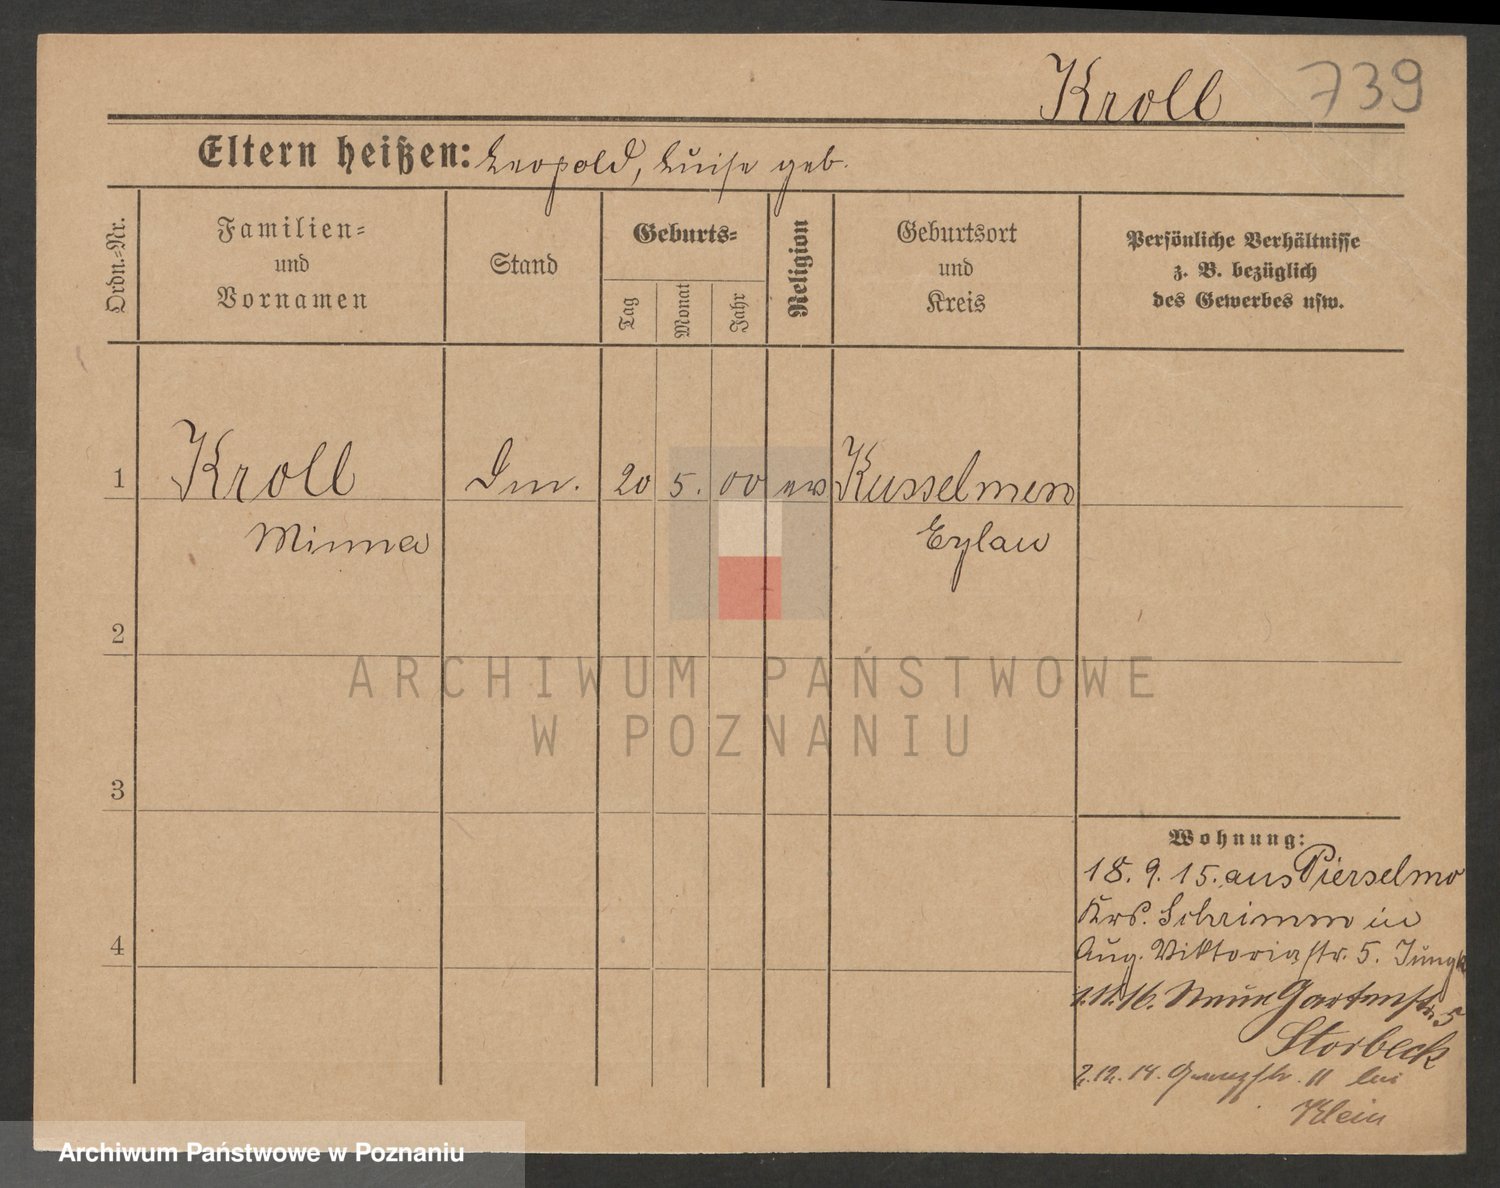 Kroll 739
Eltern heißen: Leopold, Luise geb.
Ordn.-Nr.
Familien-
und
Vornamen
Stand
Geburts-
Tag
Monat
Jahr
Religion
Geburtsort
und
Kreis
Persönliche Verhältnisse
z. B. bezüglich
des Gewerbes usw.
1 Kroll 20 5. 00 ev Kusselmen
Minna Eylau
2
3
4
Wohnung:
18. 9. 15. aus Pierselmo
Krs. Schrimm in
Aug. Viktoriastr. 5. Jungk
1.11.16. Neue Gartenstr. 5
Storbeck
11 bei
Klein
ARCHIWUM PAŃSTWOWE
W POZNANIU
Archiwum Państwowe w Poznaniu